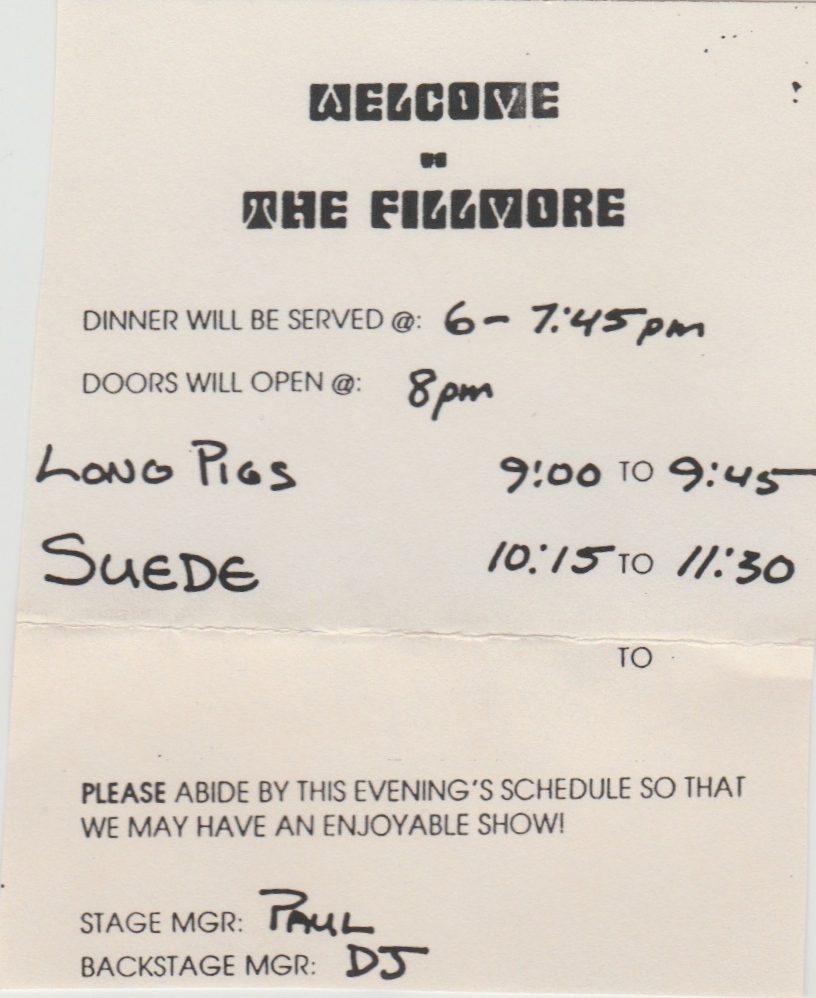 WELCOME
TO
THE FILLMORE
DINNER WILL BE SERVED @: 6 - 7:45 pm
DOORS WILL OPEN @: 8pm
LONG PIGS 9:00 TO 9:45
SUEDE 10:15 TO 11:30
TO
PLEASE ABIDE BY THIS EVENING'S SCHEDULE SO THAT
WE MAY HAVE AN ENJOYABLE SHOW!
STAGE MGR: PAUL
BACKSTAGE MGR: DJ